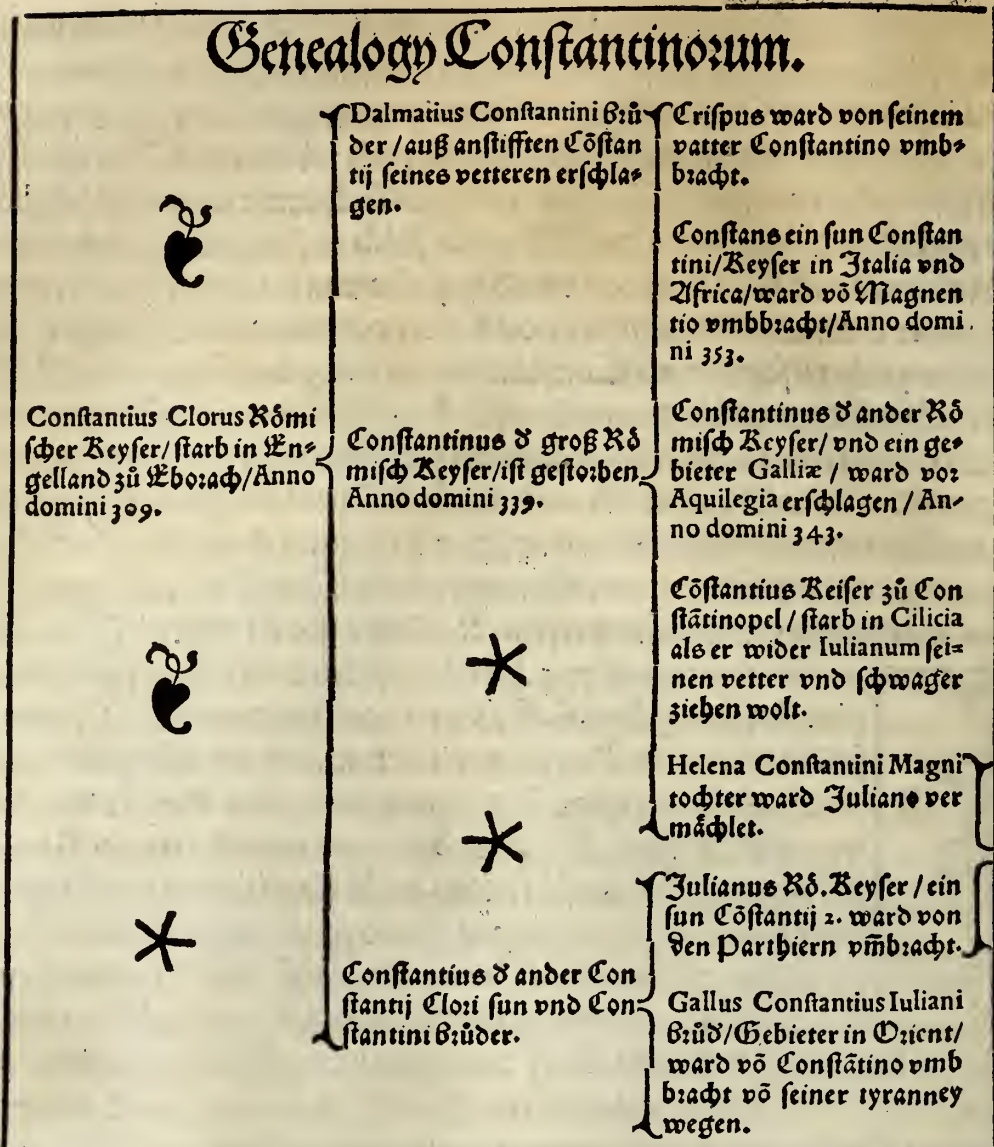 Genealogy Constantinorum.
Constantius Clorus Rômi
scher Keyser/ starb in En⸗
gelland zů Eborach/Anno
domini 309.
Dalmatius Constantini brů
der /auß anstifften Cõstan
tij seines vetteren erschla⸗
gen.
Constantinus d' groß Rô
misch Keyser/ist gestorben
Anno domini 339.
Constantius d' ander Con
stantij Clori sun vnd Con⸗
stantini brůder.
Crispus ward von seinem
vatter Constantino vmb⸗
bracht.
Constans ein sun Constan
tini/Keyser in Italia vnd
Africa/ward võ Magnen
tio vmbbracht/Anno domi
ni 353.
Constantinus d' ander Rô
misch Keyser/ vnd ein ge⸗
bieter Galliæ / ward vor
Aquilegia erschlagen / An⸗
no domini 343.
Cõstantius Keiser zů Con
stãtinopel / starb in Cilicia
als er wider Iulianum sei⸗
nen vetter vnd schwager
ziehen wolt.
Helena Constantini Magni
tochter ward Juliano ver
mâchlet.
Julianus Rô. Keyser / ein
sun Cõstantij 2. ward von
den Parthiern vm̃bracht.
Gallus Constantius Iuliani
brůd'/Gebieter in Orient/
ward võ Constãtino vmb
bracht võ seiner tyranney
wegen.